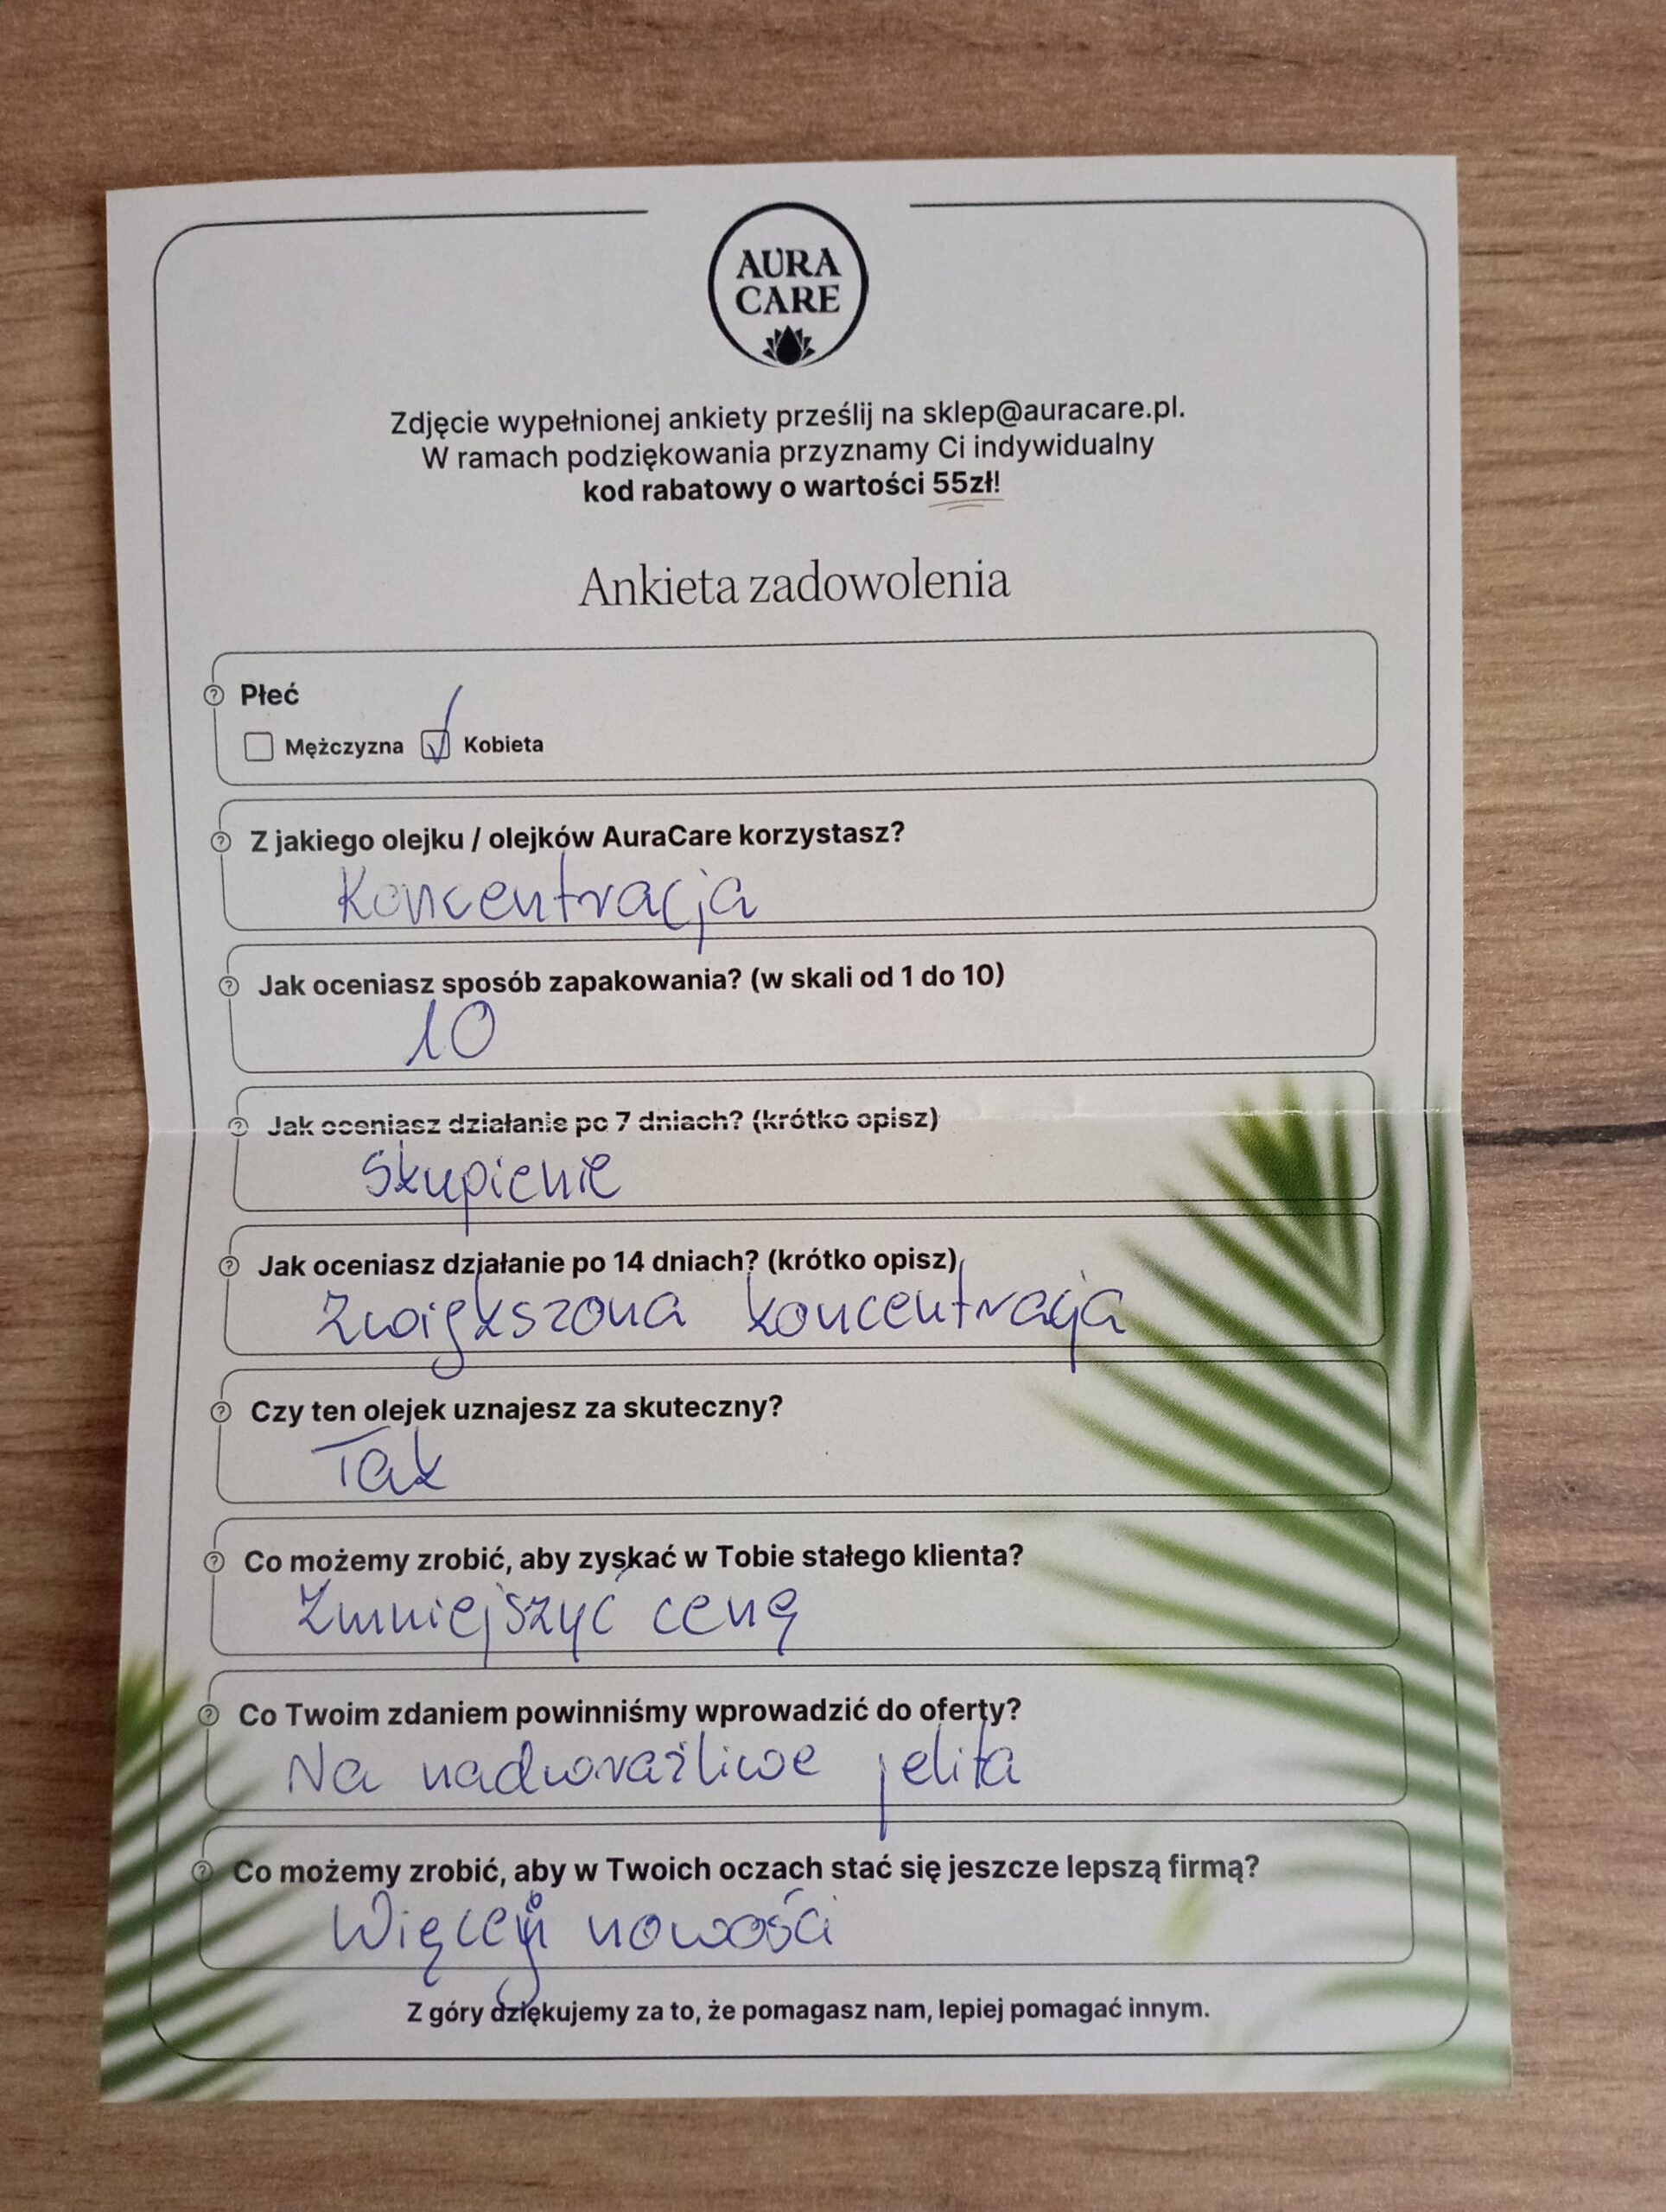 AURA
CARE
Zdjęcie wypełnionej ankiety prześlij na sklep@auracare.pl.
W ramach podziękowania przyznamy Ci indywidualny
kod rabatowy o wartości 55zł!
Ankieta zadowolenia
Płeć
Mężczyzna Kobieta
Z jakiego olejku / olejków AuraCare korzystasz?
Koncentracja
Jak oceniasz sposób zapakowania? (w skali od 1 do 10)
10
Jak oceniasz działanie po 7 dniach? (krótko opisz)
Skupienie
Jak oceniasz działanie po 14 dniach? (krótko opisz)
Zwiększona koncentracja
Czy ten olejek uznajesz za skuteczny?
Tak
Co możemy zrobić, aby zyskać w Tobie stałego klienta?
Zmniejszyć cenę
Co Twoim zdaniem powinniśmy wprowadzić do oferty?
Na nadwrażliwe jelita
Co możemy zrobić, aby w Twoich oczach stać się jeszcze lepszą firmą?
Więcej nowości
Z góry dziękujemy za to, że pomagasz nam, lepiej pomagać innym.